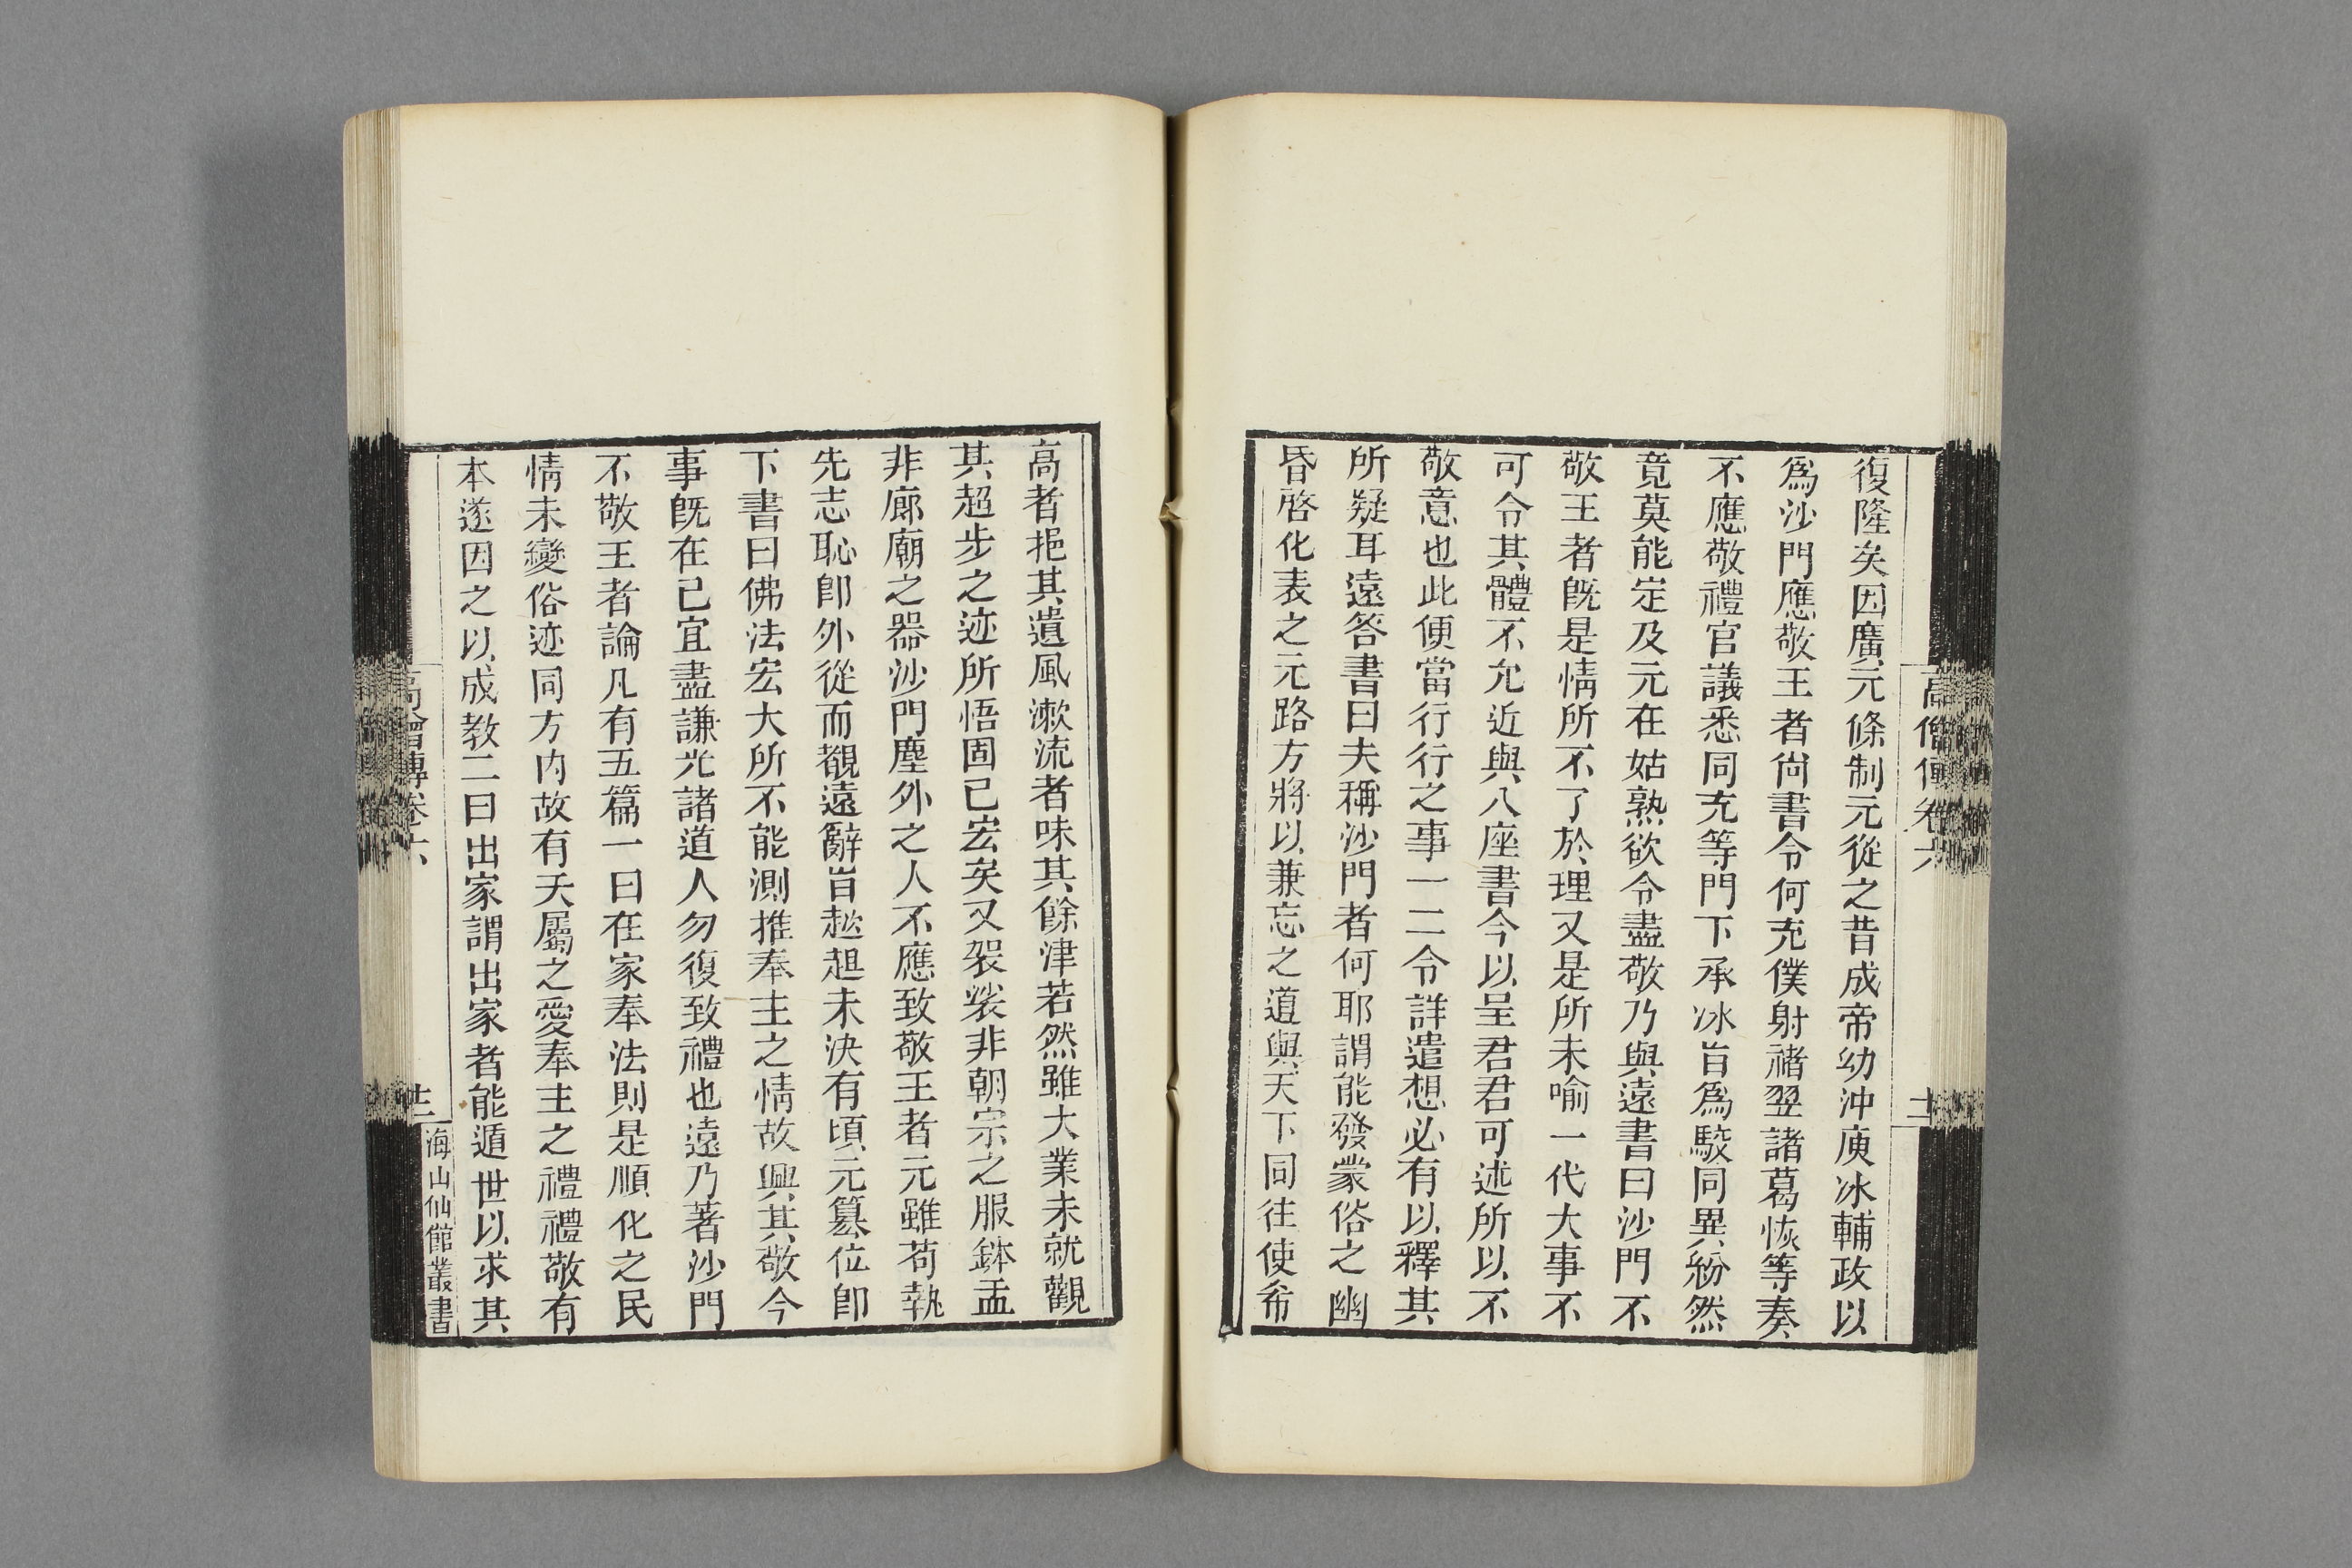 復隆矣因廣元條制元從之昔成帝幼沖庾冰輔政以
爲沙門應敬王者尙書令何充僕射褚翌諸葛恢等奏
不應敬禮官議悉同充等門下承冰旨爲駮同異紛然
竟莫能定及元在姑熟欲令盡敬乃與遠書曰沙門不
敬王者旣是情所不了於理又是所未喻一代大事不
可令其體不允近與八座書今以呈君君可述所以不
敬意也此便當行行之事一二令詳遣想必有以釋其
所疑耳遠答書曰夫稱沙門者何耶謂能發蒙俗之幽
昏啓化表之元路方將以兼忘之道與天下同往使希
高者挹其遺風漱流者味其餘津若然雖大業未就觀
其超步之迹所悟固已宏矣又袈裟非朝宗之服鉢盂
非廊廟之器沙門塵外之人不應致敬王者元雖苟執
先志恥卽外從而覩遠辭旨趑趄未決有頃元篡位卽
下書曰佛法宏大所不能測推奉主之情故興其敬今
事旣在己宜盡謙光諸道人勿復致禮也遠乃著沙門
不敬王者論凡有五篇一曰在家奉法則是順化之民
情未變俗迹同方內故有天屬之愛奉主之禮禮敬有
本遂因之以成教二曰出家謂出家者能遁世以求其
高僧傳卷六
海山仙館叢書